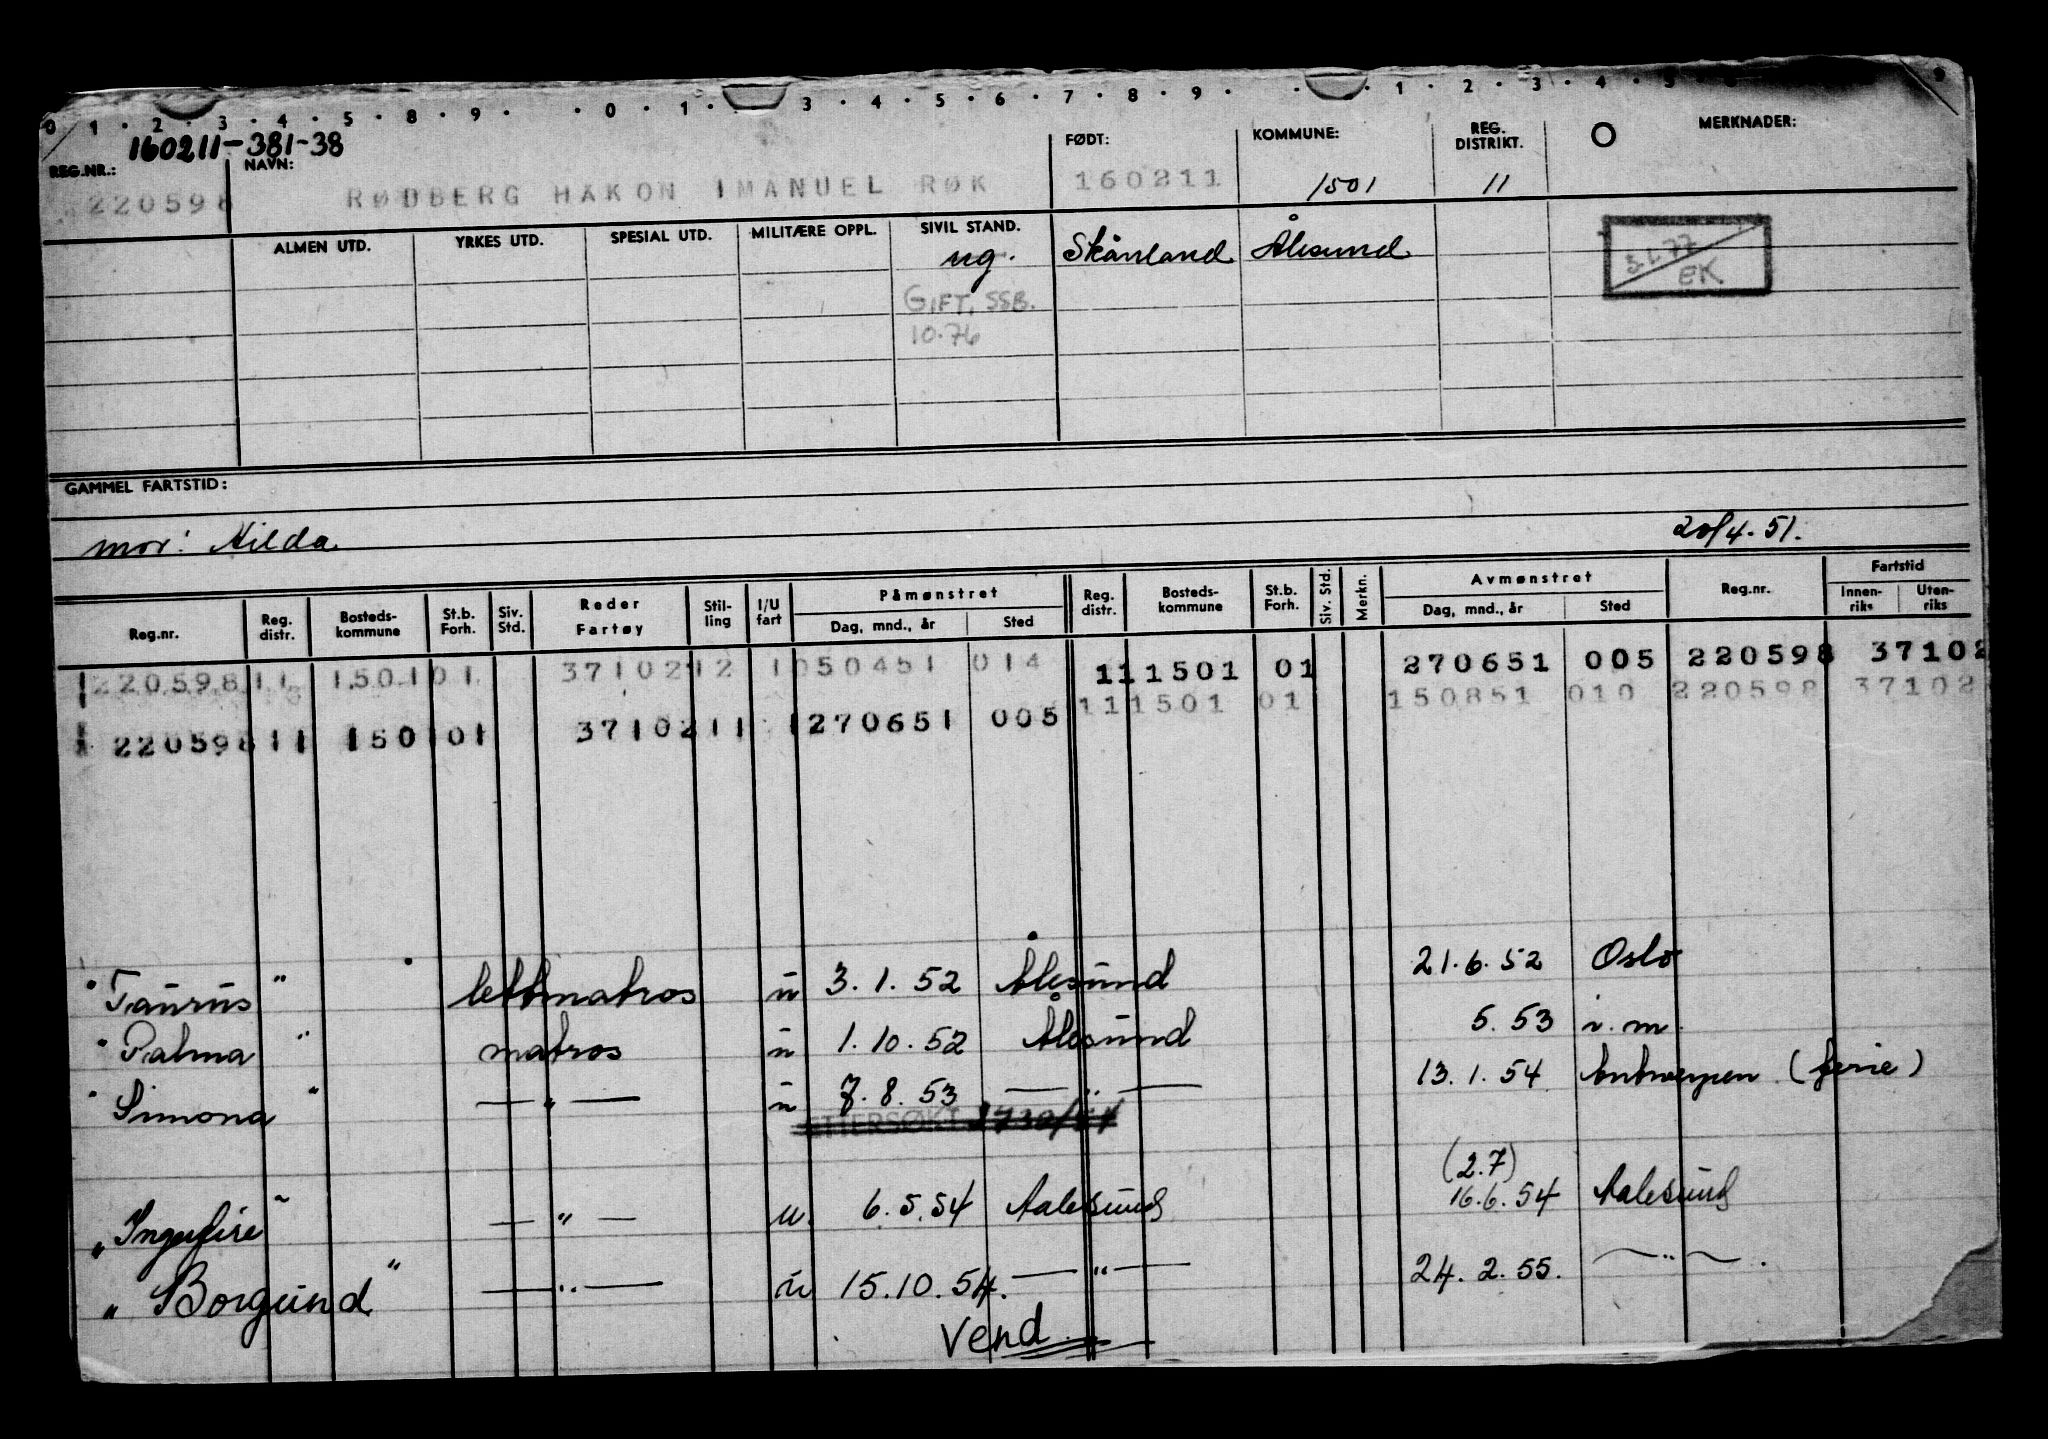 0 1 · 2 · 3 · 4 · 5 · 8 · 9 · · 0 · 1 · 3 · 4 · 5 · 6 · 7 · 8 · 9 · · 1 · 2 · 3 · 4 · 5 9
160211-381-38
REG.NR.: NAVN: FØDT: KOMMUNE: REG. DISTRIKT. O MERKNADER:
220598 RØDBERG HAKON IMANUEL RØK 160211 1501 11
ALMEN UTD. YRKES UTD. SPESIAL UTD. MILITÆRE OPPL. SIVIL STAND.
ug. Skånland Ålesund
3.1.77
EK
GIFT. SSB.
10.76
GAMMEL FARTSTID:
mor: Hilda 20/4-51.
Reg.nr. Reg. distr. Bosteds-kommune St.b. Forh. Siv. Std. Reder Fartøy Stil-ling I/U fart Påmønstret Dag, mnd., år Sted Reg. distr. Bosteds-kommune St.b. Forh. Siv. Std. Merkn. Avmønstret Dag, mnd., år Sted Reg.nr. Fartstid Innen-riks Uten-riks
220598 11 1501 01 37102 12 1 050451 014 11 1501 01 270651 005 220598 37102
220598 11 1501 01 37102 11 1 270651 005 11 1501 01 150851 010 220598 37102
" Taurus " lettmatros u 3.1.52 Ålesund 21.6.52 Oslo
" Palma " matros u 1.10.52 Ålesund 5.53 i.m.
" Simona " — " — u 7.8.53 — " — 13.1.54 Antwerpen (ferie)
ETTERSØKT
(2.7)
" Ingefire " — " — u. 6.5.54 Aalesund 16.6.54 Aalesund
" Borgund " — " — u 15.10.54. — " — 24.2.55. — " — .
Vend